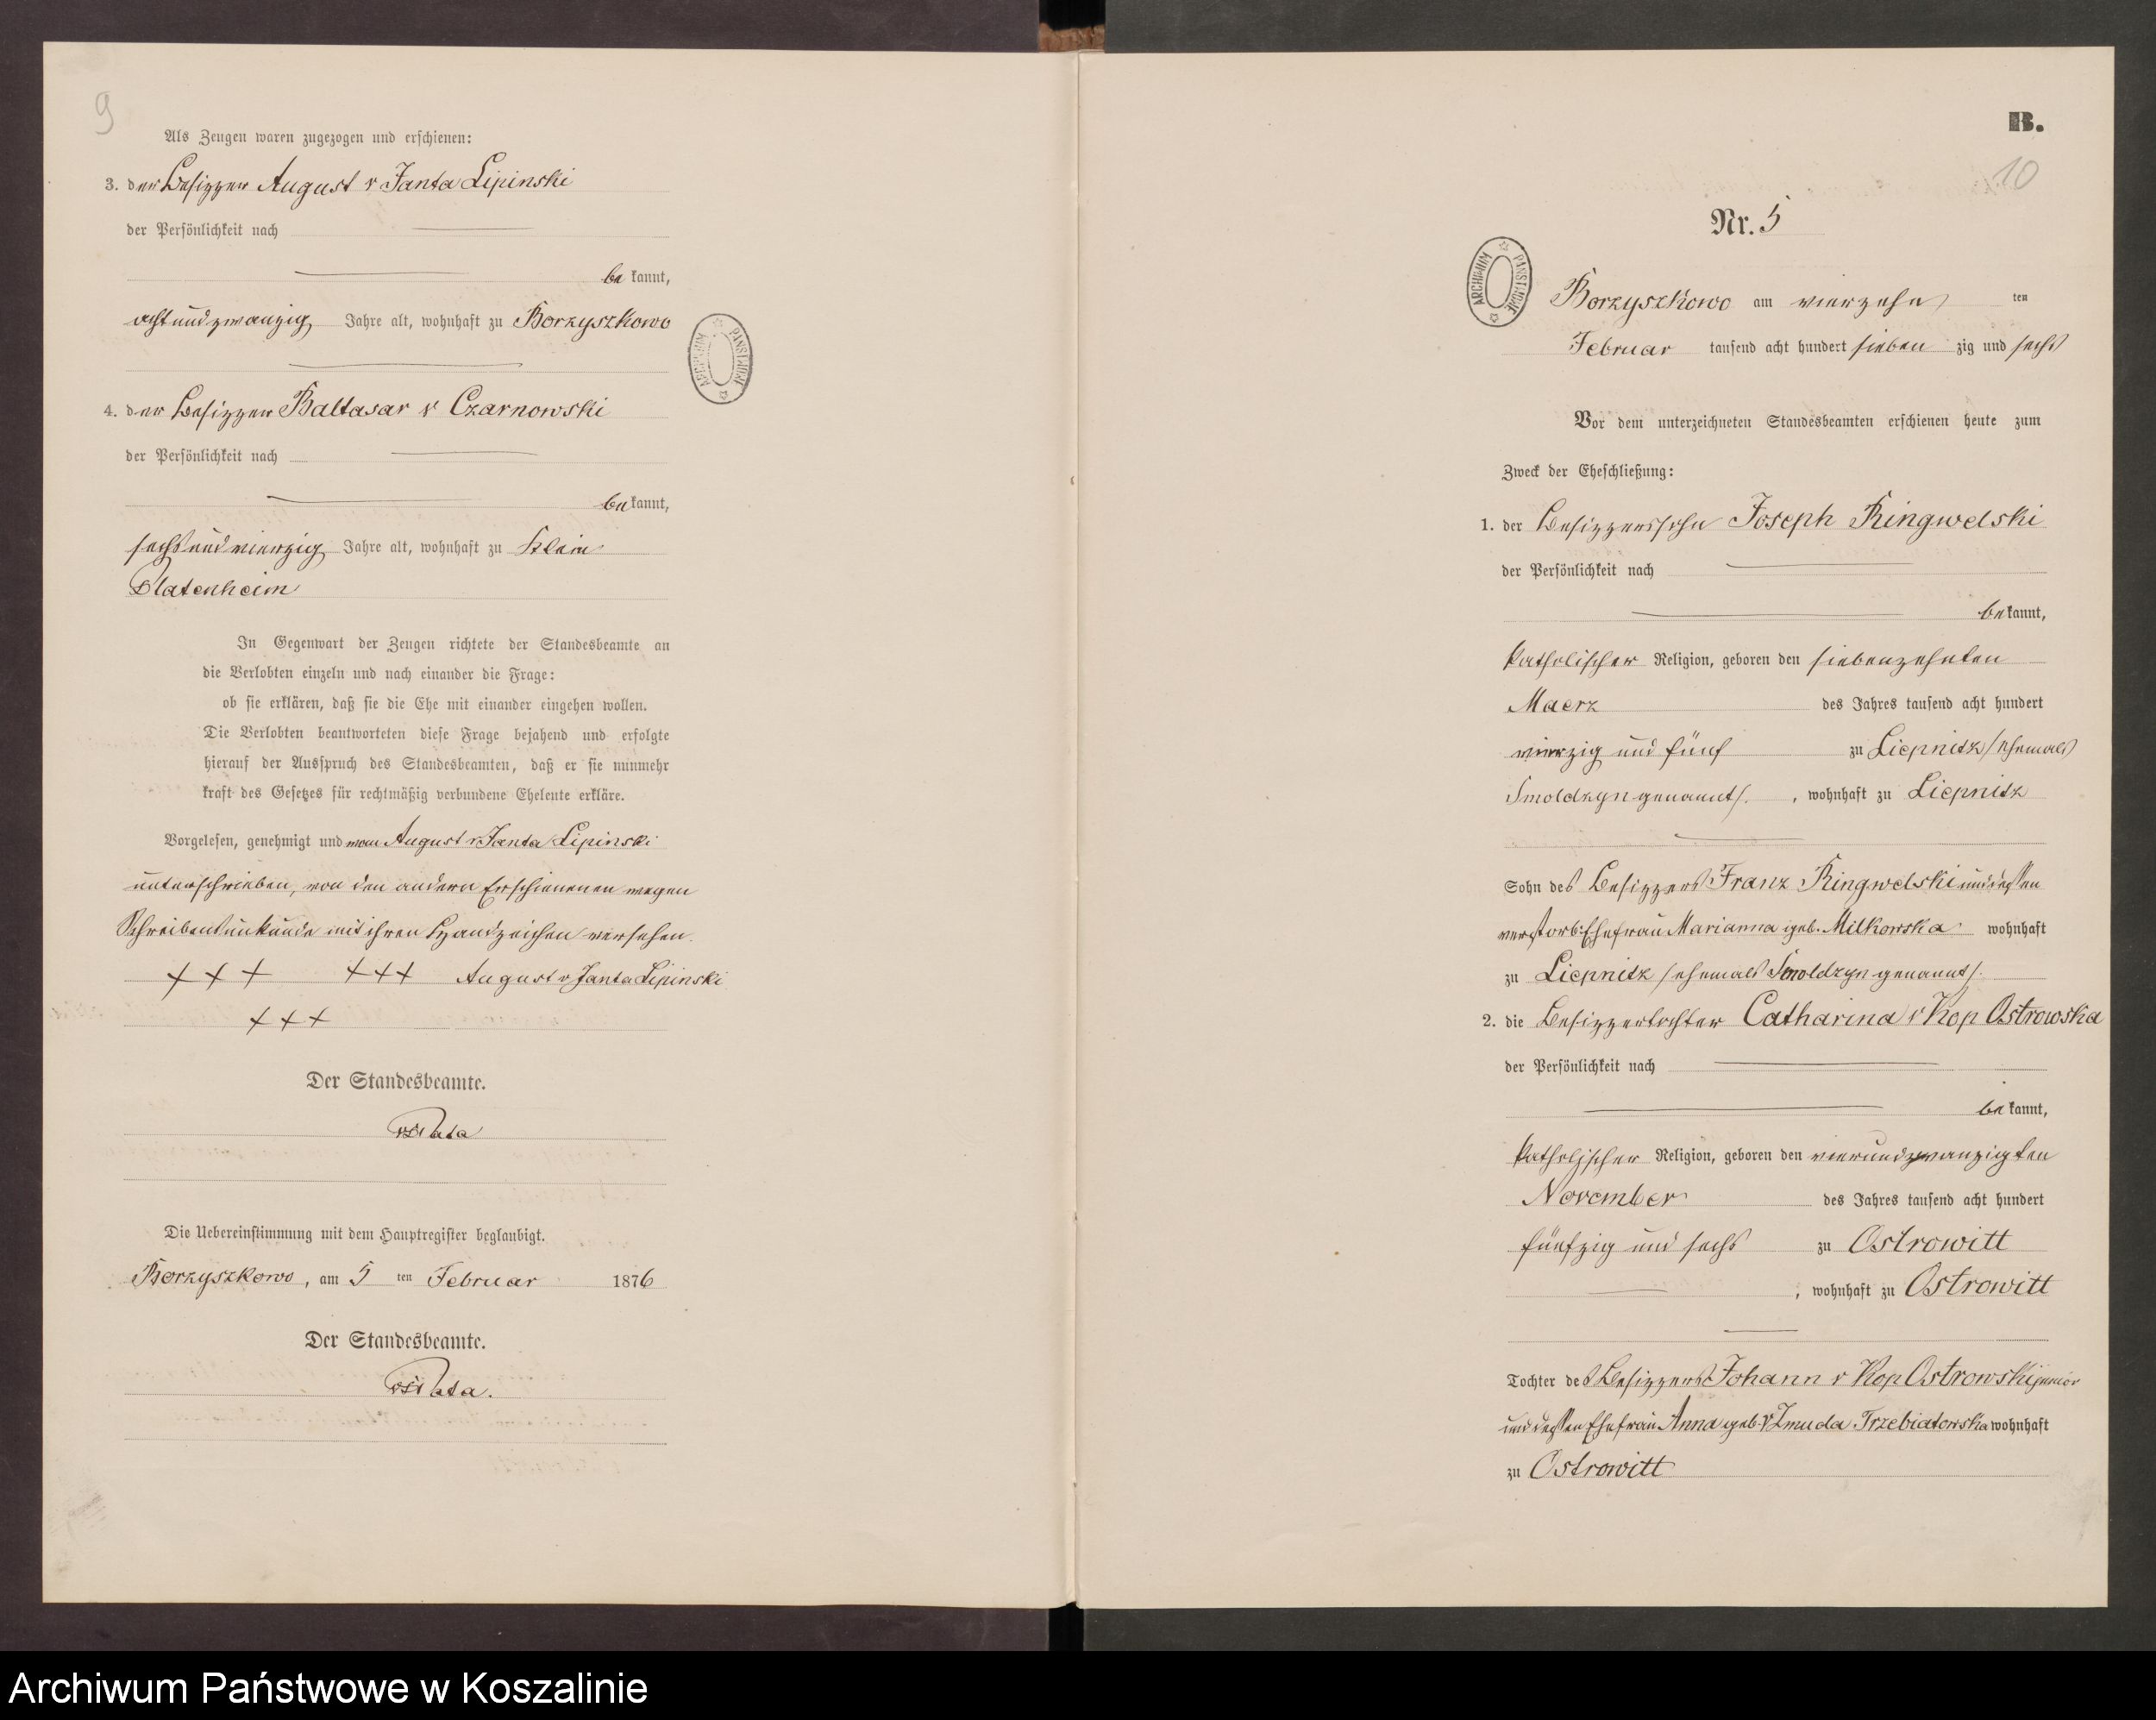 9
Als Zeugen waren zugezogen und erschienen:
3. der Besitzer August v Janta Lipinski
der Persönlichkeit nach
bekannt,
achtundzwanzig Jahre alt, wohnhaft zu Borzyszkowo
ARCHIWUM PAŃSTWOWE
4. der Besitzer Baltasar v Czarnowski
der Persönlichkeit nach
bekannt,
sechsundvierzig Jahre alt, wohnhaft zu Klein
Platenheim
In Gegenwart der Zeugen richtete der Standesbeamte an
die Verlobten einzeln und nach einander die Frage:
ob sie erklären, daß sie die Ehe mit einander eingehen wollen.
Die Verlobten beantworteten diese Frage bejahend und erfolgte
hierauf der Ausspruch des Standesbeamten, daß er sie nunmehr
kraft des Gesetzes für rechtmäßig verbundene Eheleute erkläre.
Vorgelesen, genehmigt und von August v Janta Lipinski
unterschrieben, von den andern Erschienenen wegen
Schreibensunkunde mit ihren Handzeichen versehen.
+++ +++ August v Janta Lipinski
+++
Der Standesbeamte.
Die Uebereinstimmung mit dem Hauptregister beglaubigt.
Borzyszkowo, am 5 ten Februar 1876
Der Standesbeamte.
B.
10
Nr. 5
ARCHIWUM PAŃSTWOWE
Borzyszkowo am vierzehn ten
Februar tausend acht hundert siebenzig und sechs
Vor dem unterzeichneten Standesbeamten erschienen heute zum
Zweck der Eheschließung:
1. der Besitzerssohn Joseph Ringwelski
der Persönlichkeit nach
bekannt,
katholischer Religion, geboren den siebenzehnten
Maerz des Jahres tausend acht hundert
vierzig und fünf zu Liepnitz /ehemals
Smoldzyn genannt/. , wohnhaft zu Liepnitz
Sohn des Besitzers Franz Ringwelski und dessen
verstorb. Ehefrau Marianna geb. Milkowska wohnhaft
zu Liepnitz /ehemals Smoldzyn genannt/.
2. die Besitzertochter Catharina v Kop Ostrowska
der Persönlichkeit nach
bekannt,
katholischer Religion, geboren den vierundzwanzigten
November des Jahres tausend acht hundert
fünfzig und sechs zu Ostrowitt
, wohnhaft zu Ostrowitt
Tochter des Besitzers Johann v Kop Ostrowski junior
und dessen Ehefrau Anna geb. v Zmuda Trzebiatowska wohnhaft
zu Ostrowitt
Archiwum Państwowe w Koszalinie